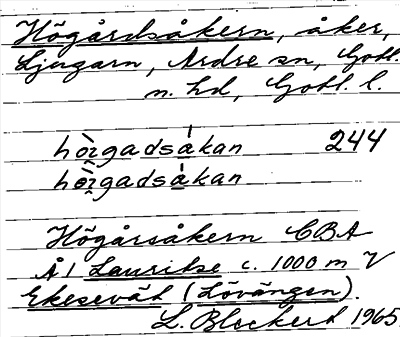 Högårdsåkern, åker,
Ljugarn, Ardre sn, Gotl.
n. hd, Gotl. l.
hö̀rgadsákan 244
hö̀rgadsàkan
Högårsåkern CBA
Å1 Lauritse c. 1000 m V
Ekesevät (Lövängen).
L. Bleckert 1965